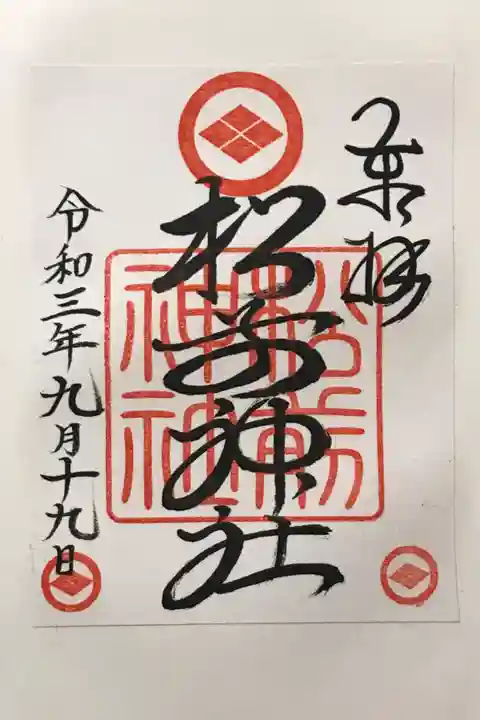 奉拝
松前神社
松前神社
令和三年九月十九日